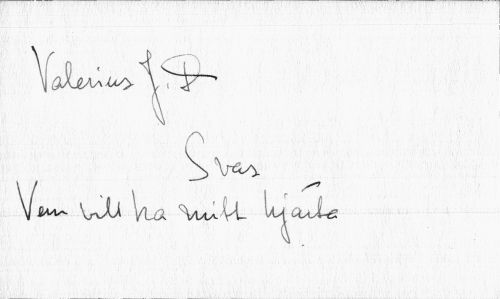 Valerius J. D
Svar
Vem vill ha mitt hjärta